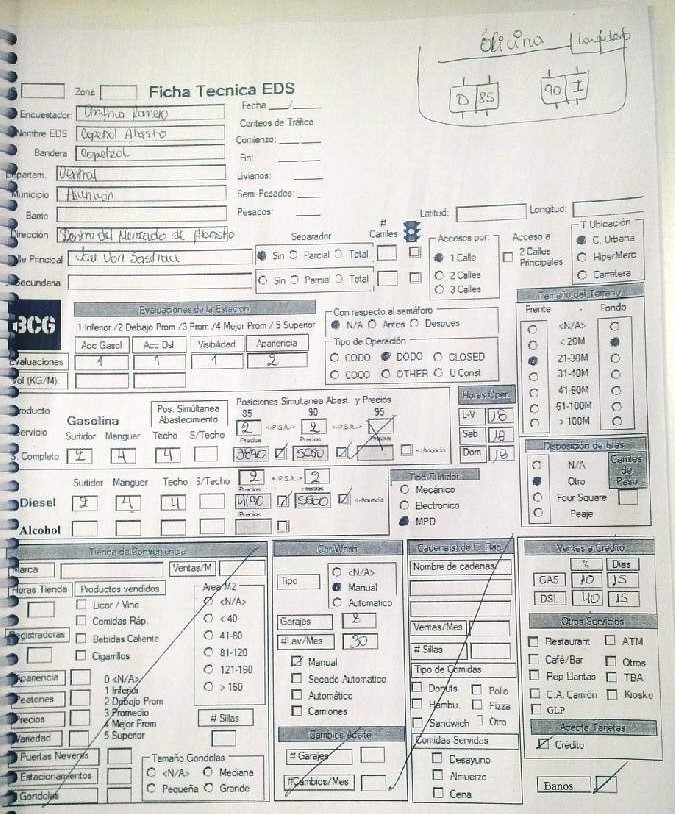 Oficina
D 85
90 I
Zona
Ficha Tecnica EDS
Encuestador Cristina Romero
Fecha __/__
Conteos de Tráfico
Nombre EDS Copetrol Abasto
Comienzo:
Bandera Copetrol
Fin:
Departam. Central
Livianos:
Municipio Asuncion
Semi-Pesados:
Barrio
Pesados:
Latitud: Longitud:
Dirección Dentro del Mercado de Abasto
Separador
# Carriles
Calle Principal
Sin Parcial Total
Secundaria
Sin Parcial Total
Accesos por:
1 Calle
2 Calles
3 Calles
Acceso a
2 Calles
Principales
T Ubicación
C. Urbana
HiperMerc
Carretera
BCG
Evaluaciones de la Estación
1 Inferior /2 Debajo Prom /3 Prom /4 Mejor Prom / 5 Superior
Acc Gasol Acc Dsl Visibilidad Apariencia
Evaluaciones 1 1 1 2
Vol (KG/M)
Con respecto al semáforo
N/A Antes Despues
Tipo de Operación
CODO DODO CLOSED
COCO OTHER U Const
Tamaño del Terreno
Frente Fondo
<N/A>
< 20M
21-30M
31-40M
41-60M
61-100M
> 100M
Producto
Gasolina
Pos. Simúltanea
Abastecimiento
Posiciones Simultanea Abast. y Precios
85 90 95
Servicio
Surtidor Manguer Techo S/Techo
2 <-P.S.A.-> 2 <-P.S.A.->
Precios Precios Precios
Completo 2 4 4
5090
<-Anuncia
Horas Oper.
L-V 18
Sab 18
Dom 18
Surtidor Manguer Techo S/Techo
2 <-P.S.A.-> 2
Precios Precios
Diesel 2 4 4
<-Anuncia
Precios
Alcohol
Tipo Surtidor
Mecánico
Electronico
MPD
Disposición de Islas
N/A
Otro
Four Square
Peaje
Carriles
de
Peaje
Tienda de Conveniencia
Marca Ventas/M
Horas Tienda Productos vendidos
Licor / Vino
Comidas Ráp.
Registradoras
Bebidas Caliente
Cigarrillos
Area M2
<N/A>
< 40
41-80
81-120
121-160
> 160
# Sillas
Apariencia
Peatones
Precios
Variedad
0 <N/A>
1 Inferior
2 Debajo Prom
3 Promedio
4 Mejor Prom
5 Superior
Puertas Neveras
Estacionamientos
Gondolas
Tamaño Gondolas
<N/A> Mediana
Pequeña Grande
Car Wash
Tipo
<N/A>
Manual
Automatico
Garajes 2
# Lav/Mes 30
Manual
Secado Automatico
Automático
Camiones
Cambios Aceite
# Garajes
#Cambios/Mes
Nombre de cadenas
Ventas/Mes
# Sillas
Tipo de Comidas
Donuts Pollo
Hambu. Pizza
Sandwich Otro
Comidas Servidas
Desayuno
Almuerzo
Cena
Ventas a Crédito
% Dias
GAS 40 15
DSL 40 15
Otros Servicios
Restaurant ATM
Café/Bar Otros
Rep Llantas TBA
C.A. Camión Kiosko
GLP
Acepta Tarjetas
Crédito
Banos